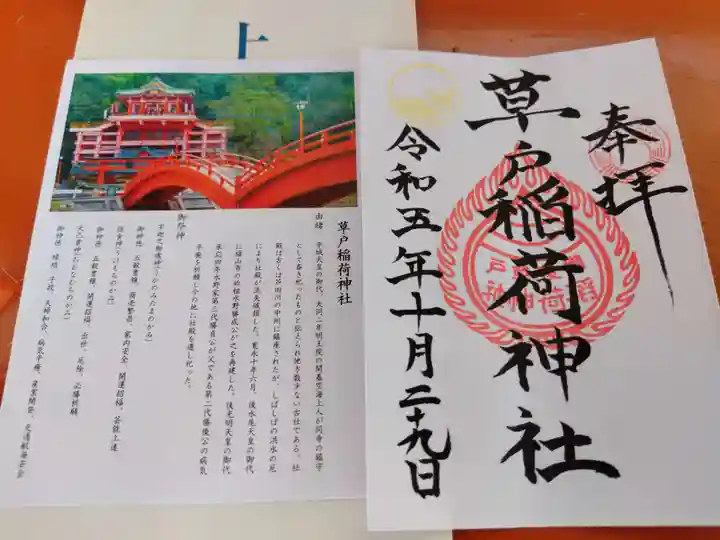 上
奉拝
草戸稲荷神社
令和五年十月二十九日
草戸稲荷神社
由緒 平城天皇の御代、大同二年明王院の開基空海上人が同寺の鎮守
として斎き祀ったものと伝えられ地方数少ない古社である。社
殿は古くは芦田川の中州に鎮座されたが、しばしばの洪水の厄
により社殿が流失破損した。寛永十年六月、後水尾天皇の御代
に福山市の始祖水野勝成公が之を再建した。後光明天皇の御代
承応四年水野家第三代勝貞公が父である第二代勝俊公の病気
平癒を祈願し今の地に社殿を遷し祀った。
御祭神
宇迦之御魂神(うかのみたまのかみ)
御神徳 五穀豊穣、商売繁昌、家内安全、開運招福、芸能上達
保食神(うけもちのかみ)
御神徳 五穀豊穣、開運招福、出世、厄除、必勝祈願
大己貴神(おおなむちのかみ)
御神徳 縁結、子授、夫婦和合、病気平癒、産業開発、交通航海安全